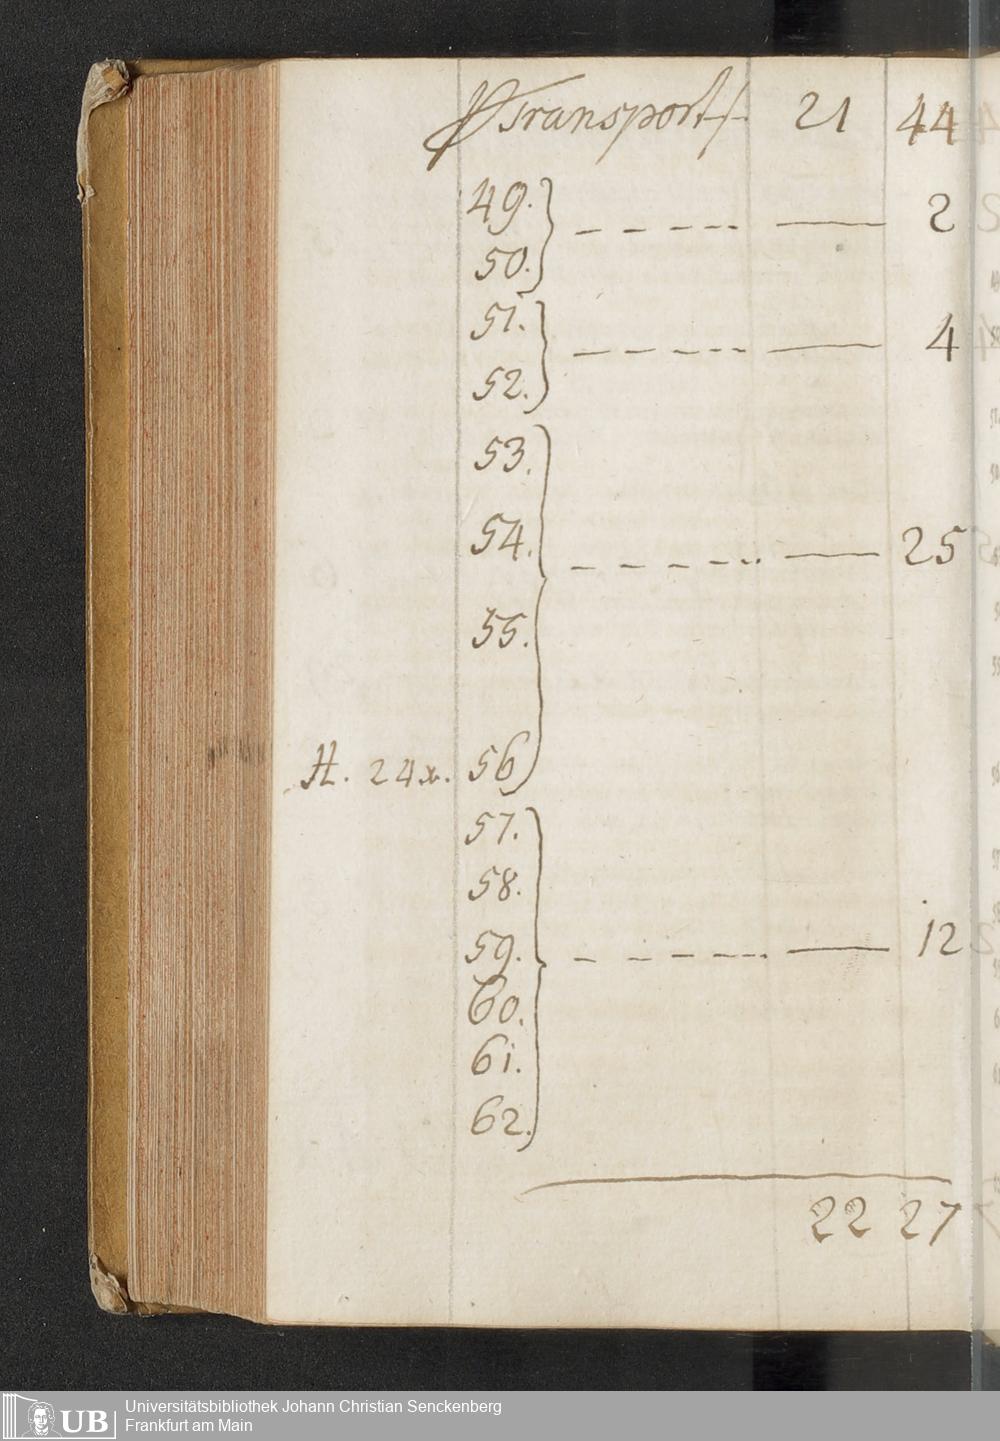 Transport f. 21 44
49.
— — — — — 2
50.
51.
— — — — — 4
52.
53.
54.
— — — — — 25
55.
H. 24 x. 56
57.
58.
59. — — — — — 12
60.
61.
62.
22 27
UB Universitätsbibliothek Johann Christian Senckenberg
Frankfurt am Main